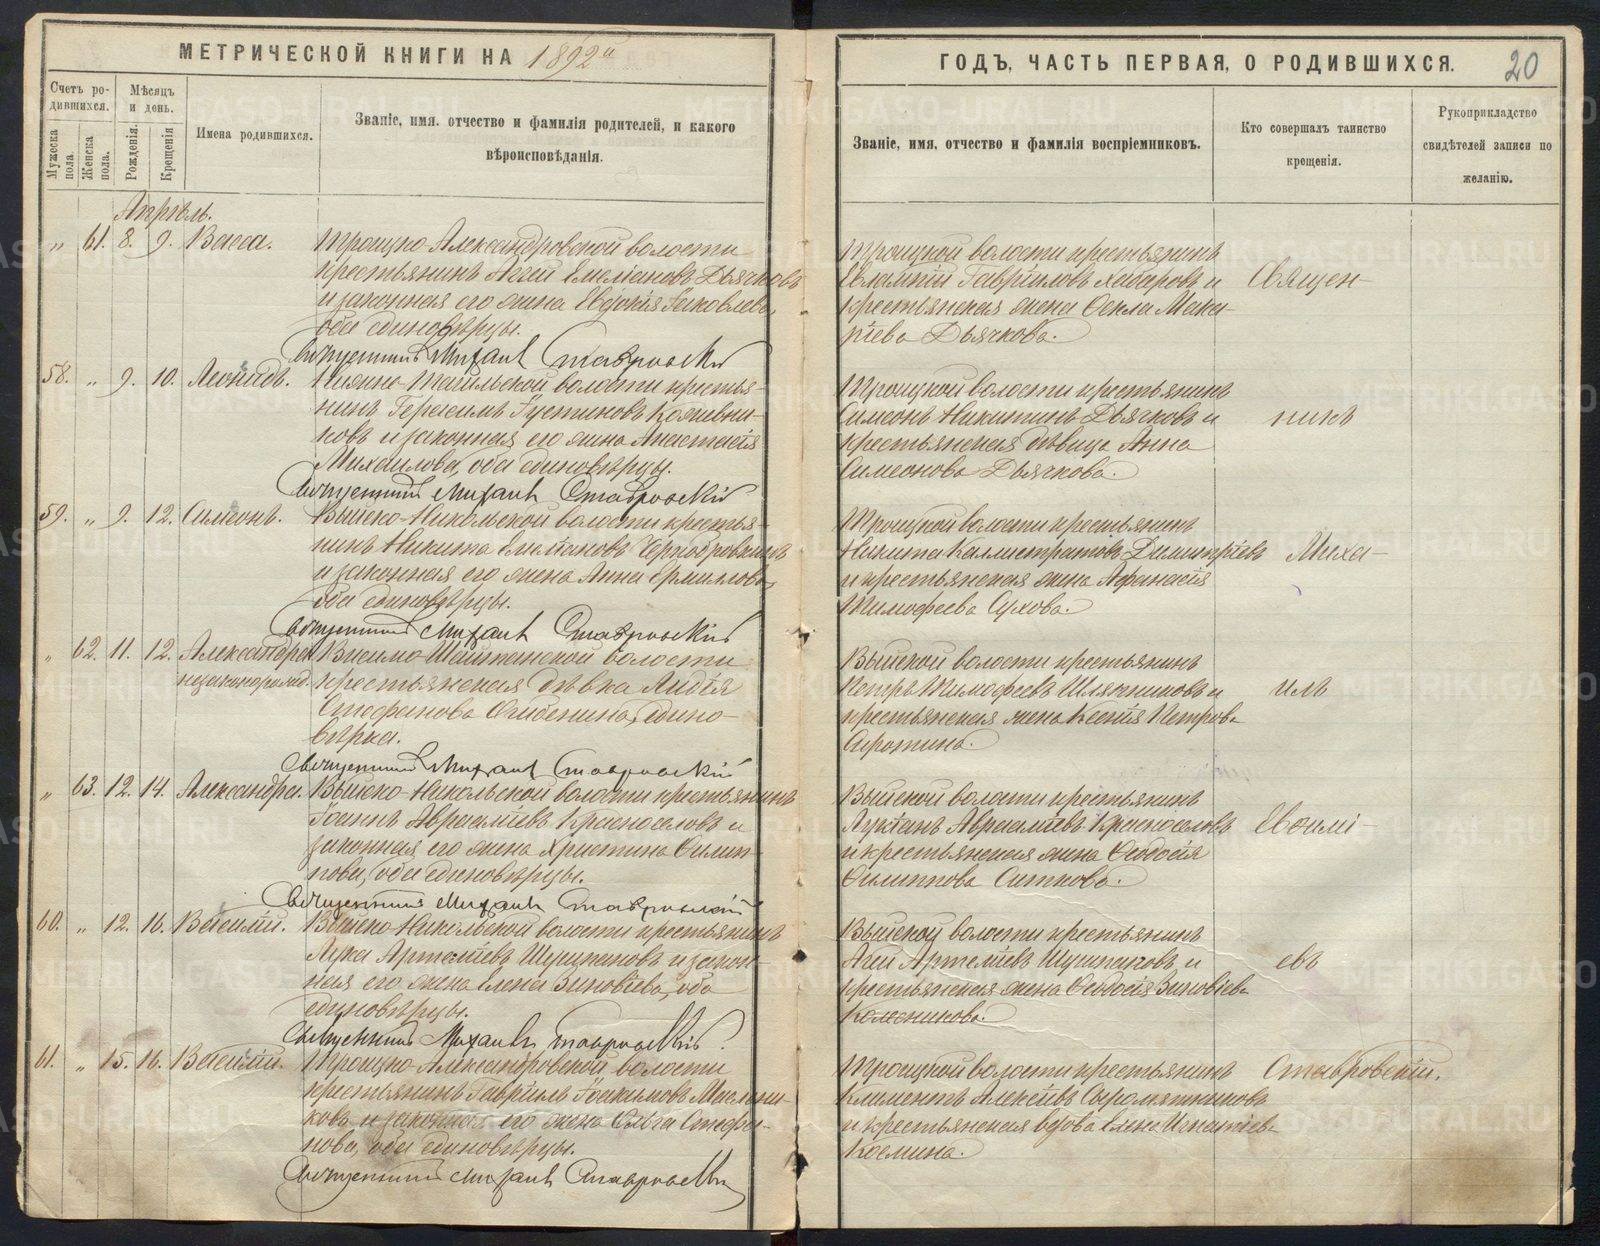 МЕТРИЧЕСКОЙ КНИГИ НА 1892й
Счетъ ро-
дившихся.
Мѣсяцъ
и день.
Мужеска
пола.
Женска
пола.
Рожденія.
Крещенія
Имена родившихся.
Званіе, имя, отчество и фамилія родителей, и какого
вѣроисповѣданія.
Апрѣль.
„ 61. 8. 9. Васса. Троицко Александровской волости
крестьянинъ Агей Емеліановъ Дьячковъ
и законная его жена Евдокія Іаковлева,
оба единовѣрцы.
Священникъ Михаилъ Ставровскій
58. „ 9. 10. Леонидъ. Нижне-Тагильской волости крестья-
нинъ Герасимъ Іустиновъ
ковъ и законная его жена Анастасія
Михаилова, оба единовѣрцы.
Священникъ Михаилъ Ставровскій
59. „ 9. 12. Симеонъ. Выйско-Никольской волости крестья-
нинъ Никита Емеліановъ Чернобровинъ
и законная его жена Анна Ермилова,
оба единовѣрцы.
Священникъ Михаилъ Ставровскій
„ 62. 11. 12. Александра Висимо-Шайтанской волости
незаконорожд. крестьянская дѣвка Лидія
Стефанова единo-
вѣрка.
Священникъ Михаилъ Ставровскій
„ 63. 12. 14. Александра. Выйско-Никольской волости крестьянинъ
Іоаннъ Авраамiевъ Красноселовъ и
законная его жена Христина Филип-
пова, оба единовѣрцы.
Священникъ Михаилъ Ставровскій
60. „ 12. 16. Василій. Выйско Никольской волости крестьянинъ
Лука Артеміевъ и закон-
ная его жена Елена Зиновіева, оба
единовѣрцы.
Священникъ Михаилъ Ставровскій
61. „ 15. 16. Василій. Троицко-Александровской волости
крестьянинъ Гавріилъ Іоакимовъ Масленни-
ковъ и законная его жена Ольга Стефа-
нова, оба единовѣрцы.
Священникъ Михаилъ Ставровскій
ГОДЪ, ЧАСТЬ ПЕРВАЯ, О РОДИВШИХСЯ. 20
Званіе, имя, отчество и фамилія воспріемниковъ.
Кто совершалъ таинство
крещенія.
Рукоприкладство
свидѣтелей записи по
желанію.
Троицкой волости крестьянинъ
Евлампій Гавріиловъ Хабаровъ и Священ-
крестьянская жена Фекла Мака-
ріева Дьячкова.
Троицкой волости крестьянинъ
Симеонъ Никитинъ Дьячковъ и никъ
крестьянская дѣвица Анна
Симеонова Дьячкова.
Троицкой волости крестьянинъ
Никита Каллистратовъ Димитріевъ Миха-
и крестьянская жена Афанасія
Тимофеева Сухова.
Выйской волости крестьянинъ
Петръ Тимофеевъ Шляпниковъ и илъ
крестьянская жена Ксенія Петрова
Сиротина.
Выйской волости крестьянинъ
Лукіанъ Авраамiевъ Красноселовъ Евѳимі-
и крестьянская жена Ѳеодосія
Филиппова Ситкова.
Выйской волости крестьянинъ
Агей Артеміевъ и евъ
крестьянская жена Ѳеодосія Зиновіева
Колесникова.
Троицкой волости крестьянинъ Ставровскій.
Климентъ Алексѣевъ Сыромятниковъ
и крестьянская вдова Елена Игнатіева
Космина.
METRIKI.GASO-URAL.RU